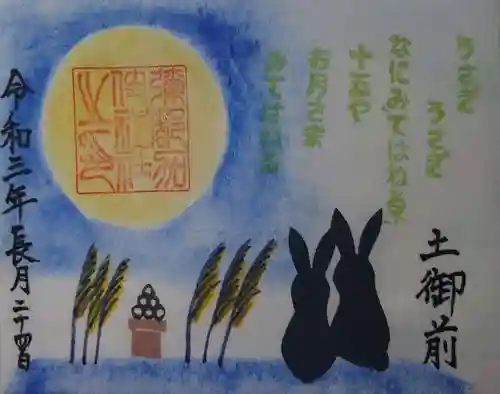 うさぎ
うさぎ
なにみてはねる
十五や
お月さま
みてはねる
土御前
令和三年長月二十四日